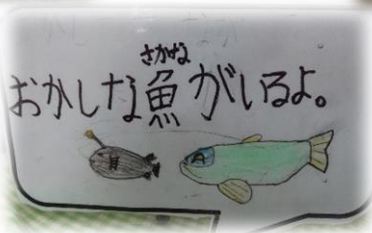 さかな
おかしな魚がいるよ。